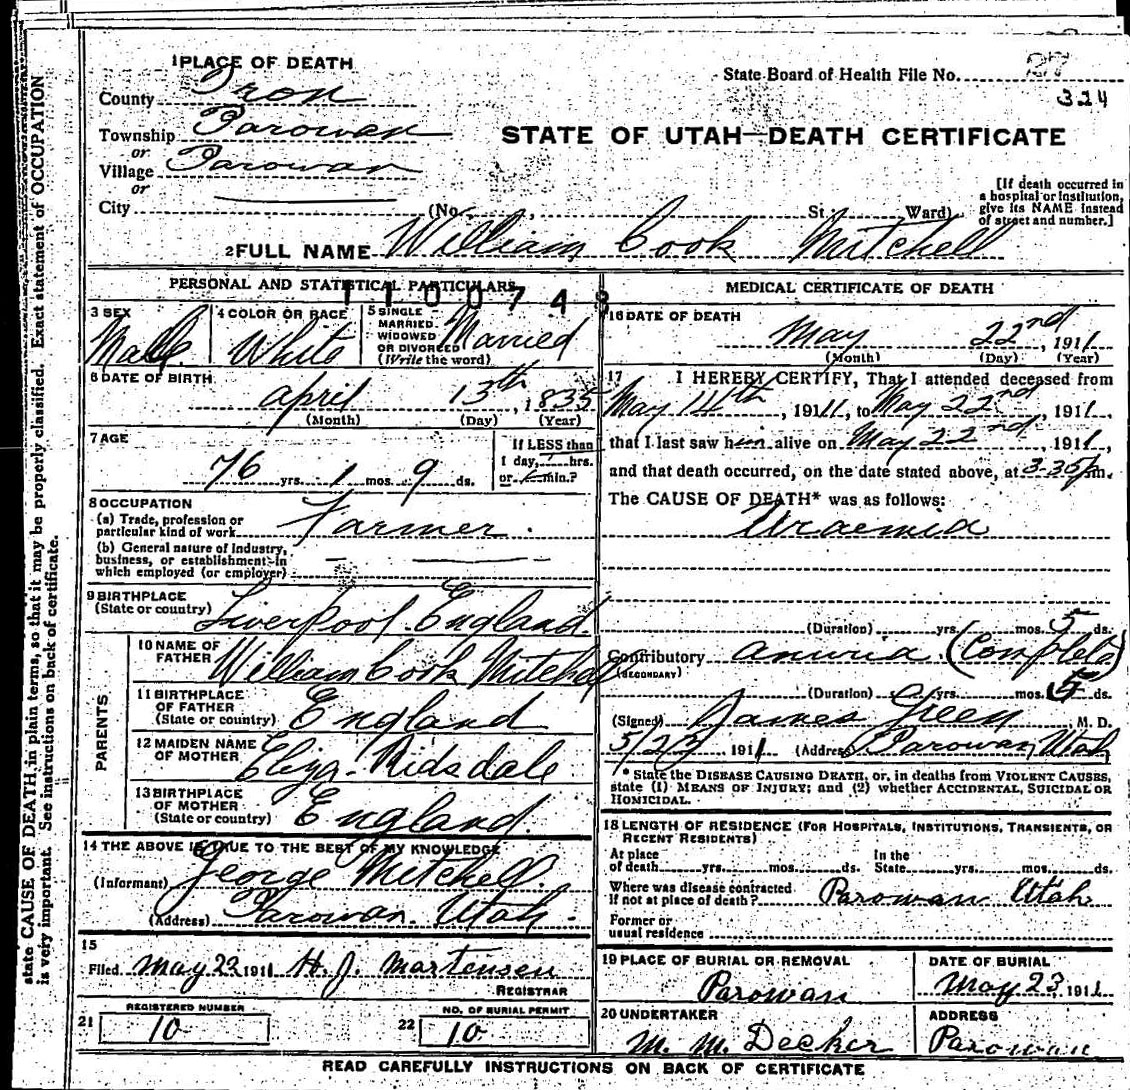 1 PLACE OF DEATH
County Iron
Township Parowan
or
Village Parowan
or
City (No. , St Ward)
State Board of Health File No. 27
324
STATE OF UTAH—DEATH CERTIFICATE
[If death occurred in
a hospital or institution,
give its NAME instead
of street and number.]
2 FULL NAME William Cook Mitchell
PERSONAL AND STATISTICAL PARTICULARS
3 SEX
Male
4 COLOR OR RACE
White
5 SINGLE
MARRIED
WIDOWED
OR DIVORCED
(Write the word)
Married
6 DATE OF BIRTH
April 13th, 1835
(Month) (Day) (Year)
7 AGE
76 yrs. 1 mos. 9 ds.
If LESS than
1 day, hrs.
or min.?
8 OCCUPATION
(a) Trade, profession or
particular kind of work Farmer.
(b) General nature of industry,
business, or establishment in
which employed (or employer)
9 BIRTHPLACE
(State or country) Liverpool England.
PARENTS
10 NAME OF
FATHER William Cook Mitchell
11 BIRTHPLACE
OF FATHER
(State or country) England
12 MAIDEN NAME
OF MOTHER Eliza Ridsdale
13 BIRTHPLACE
OF MOTHER
(State or country) England.
14 THE ABOVE IS TRUE TO THE BEST OF MY KNOWLEDGE
(Informant) George Mitchell.
(Address) Parowan. Utah.
15
Filed May 22 1911 H. J. Mortensen
REGISTRAR
REGISTERED NUMBER
21 10
NO. OF BURIAL PERMIT
22 10
MEDICAL CERTIFICATE OF DEATH
16 DATE OF DEATH
May 22nd, 1911
(Month) (Day) (Year)
17 I HEREBY CERTIFY, That I attended deceased from
May 14th, 1911, to May 22nd, 1911,
that I last saw him alive on May 22nd, 1911,
and that death occurred, on the date stated above, at 3-35 p.m.
The CAUSE OF DEATH* was as follows:
Uraemia
(Duration) yrs. mos. 5 ds.
Contributory anuria (Complete)
(SECONDARY)
(Duration) yrs. mos. 5 ds.
(Signed) James Green M. D.
5/23 1911 (Address) Parowan, Utah
* State the DISEASE CAUSING DEATH, or, in deaths from VIOLENT CAUSES,
state (1) MEANS OF INJURY; and (2) whether ACCIDENTAL, SUICIDAL OR
HOMICIDAL.
18 LENGTH OF RESIDENCE (FOR HOSPITALS, INSTITUTIONS, TRANSIENTS, OR
RECENT RESIDENTS)
At place
of death yrs. mos. ds.
In the
State yrs. mos. ds.
Where was disease contracted
if not at place of death? Parowan Utah.
Former or
usual residence
19 PLACE OF BURIAL OR REMOVAL
Parowan
DATE OF BURIAL
May 23 1911
20 UNDERTAKER
M. M. Decker
ADDRESS
Parowan
READ CAREFULLY INSTRUCTIONS ON BACK OF CERTIFICATE
state CAUSE OF DEATH in plain terms, so that it may be properly classified. Exact statement of OCCUPATION
is very important. See instructions on back of certificate.